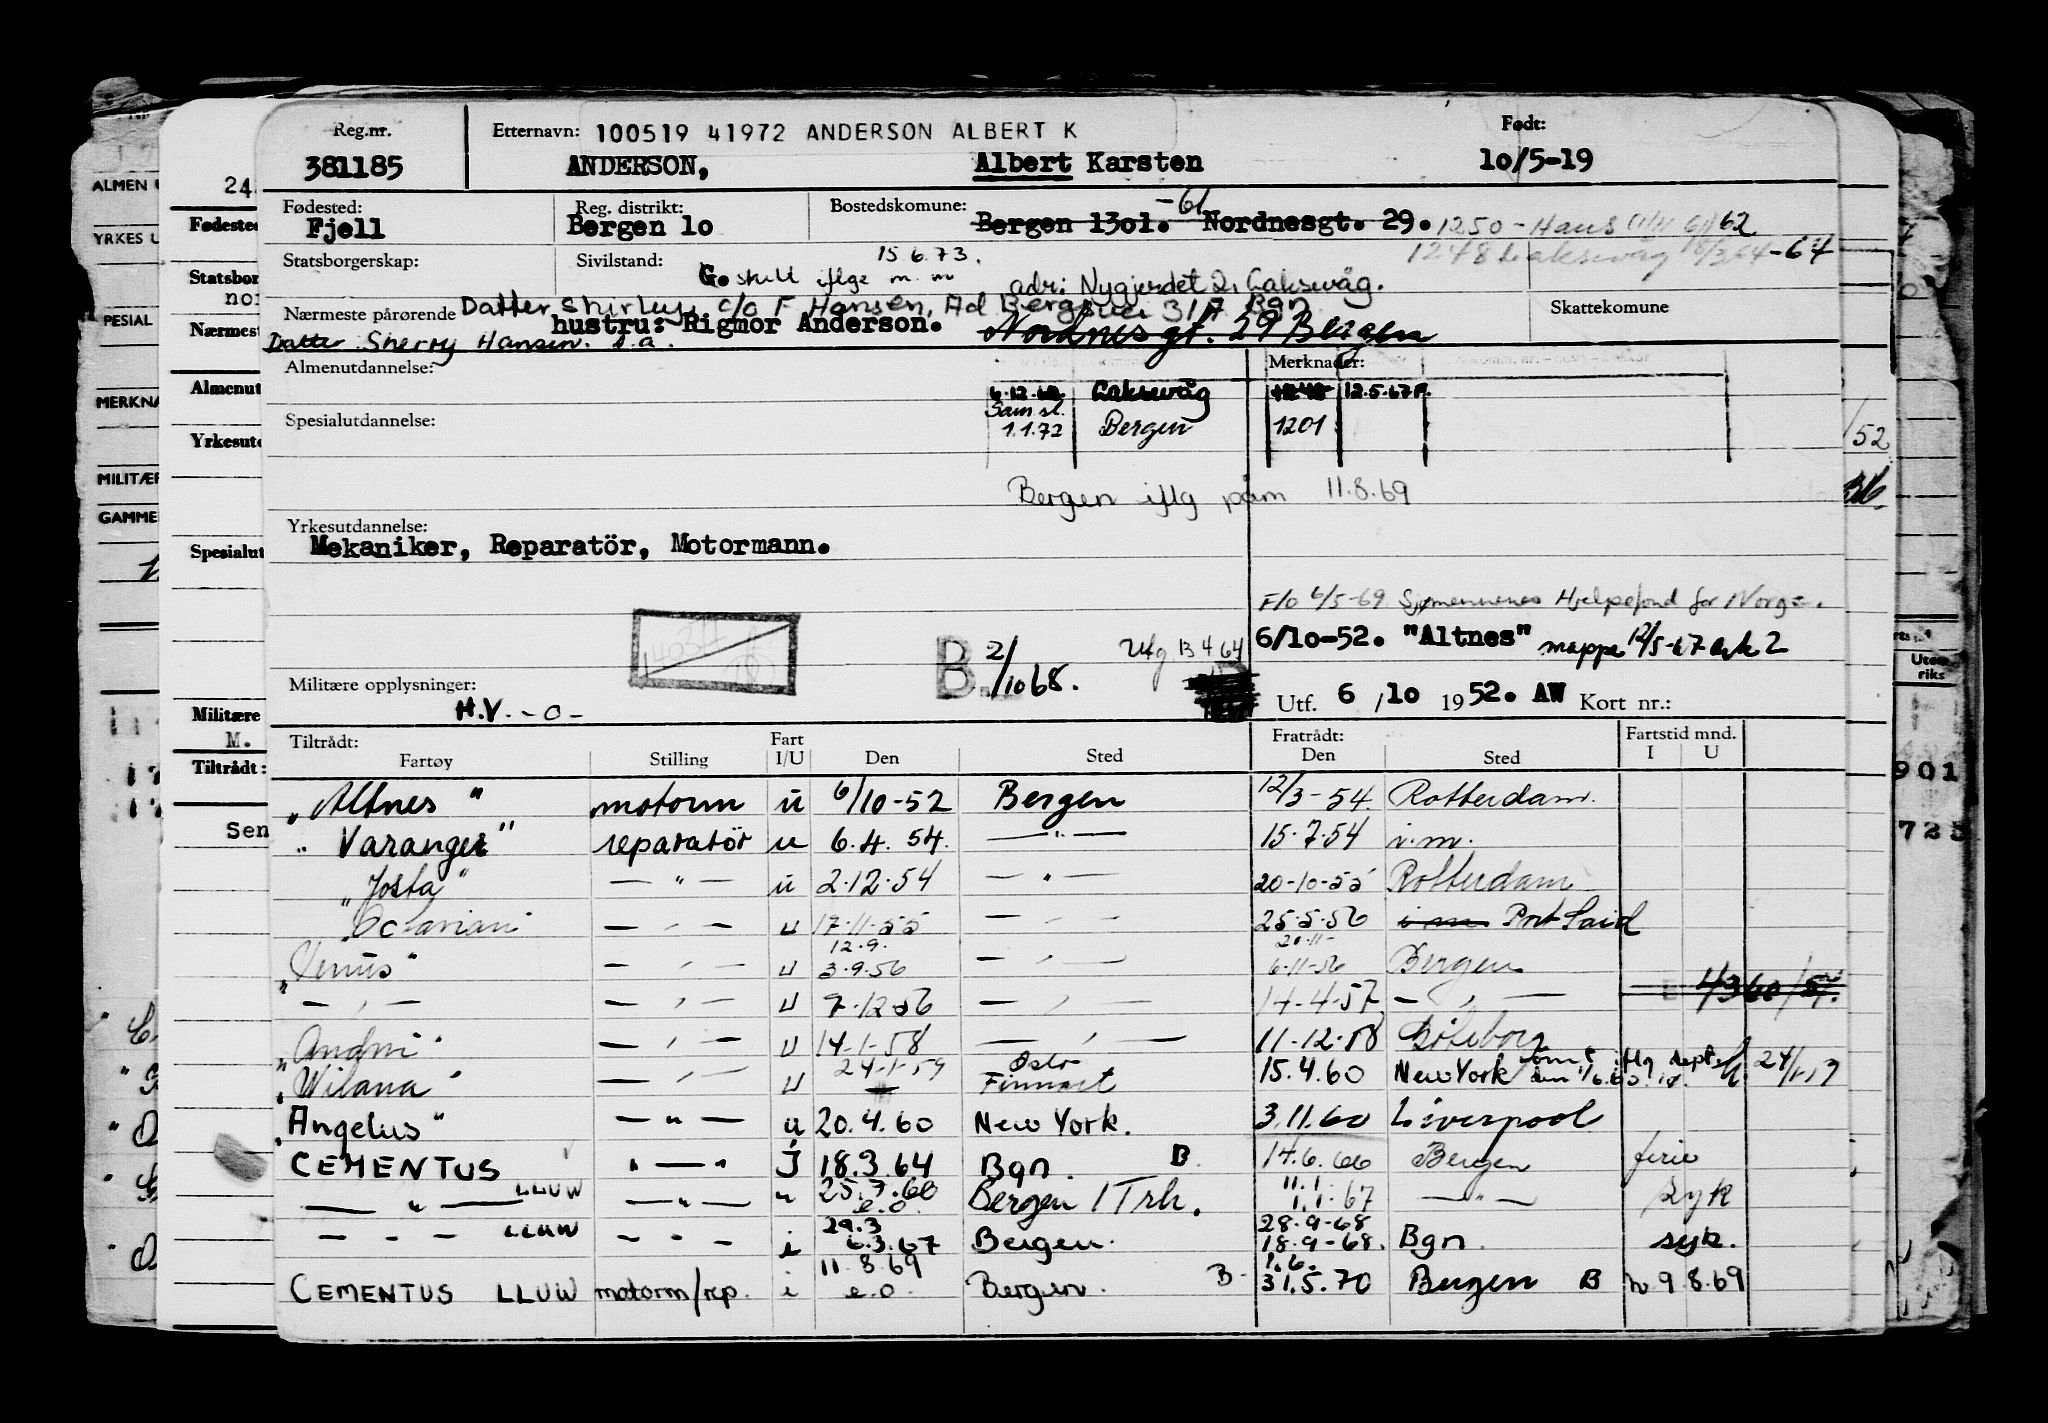 Reg.nr. Etternavn: 100519 41972 ANDERSON ALBERT K Født:
381185 ANDERSON, Albert Karsten 10/5-19
Fødested: Reg. distrikt: Bostedskommune: -61
Fjell Bergen 10 Bergen 1301. Nordnesgt. 29. 1250 - Haus 62
Statsborgerskap: Sivilstand: 15.6.73. 1248 Laksevåg 18/3 64 -64
G. skilt iflge m.m adr: Nygjerdet 2, Laksevåg.
Nærmeste pårørende Datter Shirley, c/o F Hansen, Ad Bergsvei 31A Bgn Skattekomune
hustru: Rigmor Anderson. Nordnesgt. 29 Bergen
Datter Sherry Hansen. s.a.
Almenutdannelse: Merknader:
6.12.62 Laksevåg 12.5.67
Spesialutdannelse: Sam sl.
1.1.72 Bergen 1201
Bergen iflg påm 11.8.69
Yrkesutdannelse:
Mekaniker, Reparatör, Motormann.
F/o 6/5-69 Sjømennenes Hjelpefond for Norge.
6/10-52. "Altnes" mappe 12/5-67 ark 2
B. 2/10 68. Utg B 4 64
Militære opplysninger: H.V. - o -
Utf. 6 /10 1952. AW Kort nr.:
Tiltrådt: Fart Fratrådt: Fartstid mnd.
Fartøy Stilling I/U Den Sted Den Sted I U
"Altnes" motorm u 6/10-52 Bergen 12/3-54. Rotterdam.
"Varanger" reparatör u 6.4.54. — " — 15.7.54 i.m.
"Josta" — " — u 2.12.54 — " — 20-10-55 Rotterdam
"Octavian" — " — u 17.11.55 — " — 25.5.56 i m Port Said
12.9. 20.11-
"Venus" — " — u 3.9.56 — " — 6-11-56 Bergen
— " — — " — u 7-12-56 — " — 14-4-57 — " —
"Andni" — " — u 14-1-58 — " — 11-12-58 Göteborg
24-1-59 Oslo
"Wilana" — " — u Finnart 15.4.60 New York
"Angelus" — " — u 20.4.60 New York. 3.11.60 Liverpool
CEMENTUS " — " J 18.3.64 Bgn. B. 14.6.66 Bergen ferie
— " — LLUW — " — " 25.7.66 e.o. Bergen / Trh. 11.1. 1.1.67 — " — syk
— - — LLUW — " — i 29.3 6.3.67 Bergen. 28.9-68 18.9-68. Bgn. syk.
11.8.69 1.6.
CEMENTUS LLUW motorm/rep. i e.o. Bergen. B- 31.5.70 Bergen B h. 9.8.69
24
Fødested
Statsbor
nor
Nærmest
Almenut
Yrkesutd
Spesialut
Militære
M.
Tiltrådt:
Sen
ALMEN U
YRKES U
PESIAL
MERKNA
MILITÆR
GAMME
52
Uten
riks
901
725